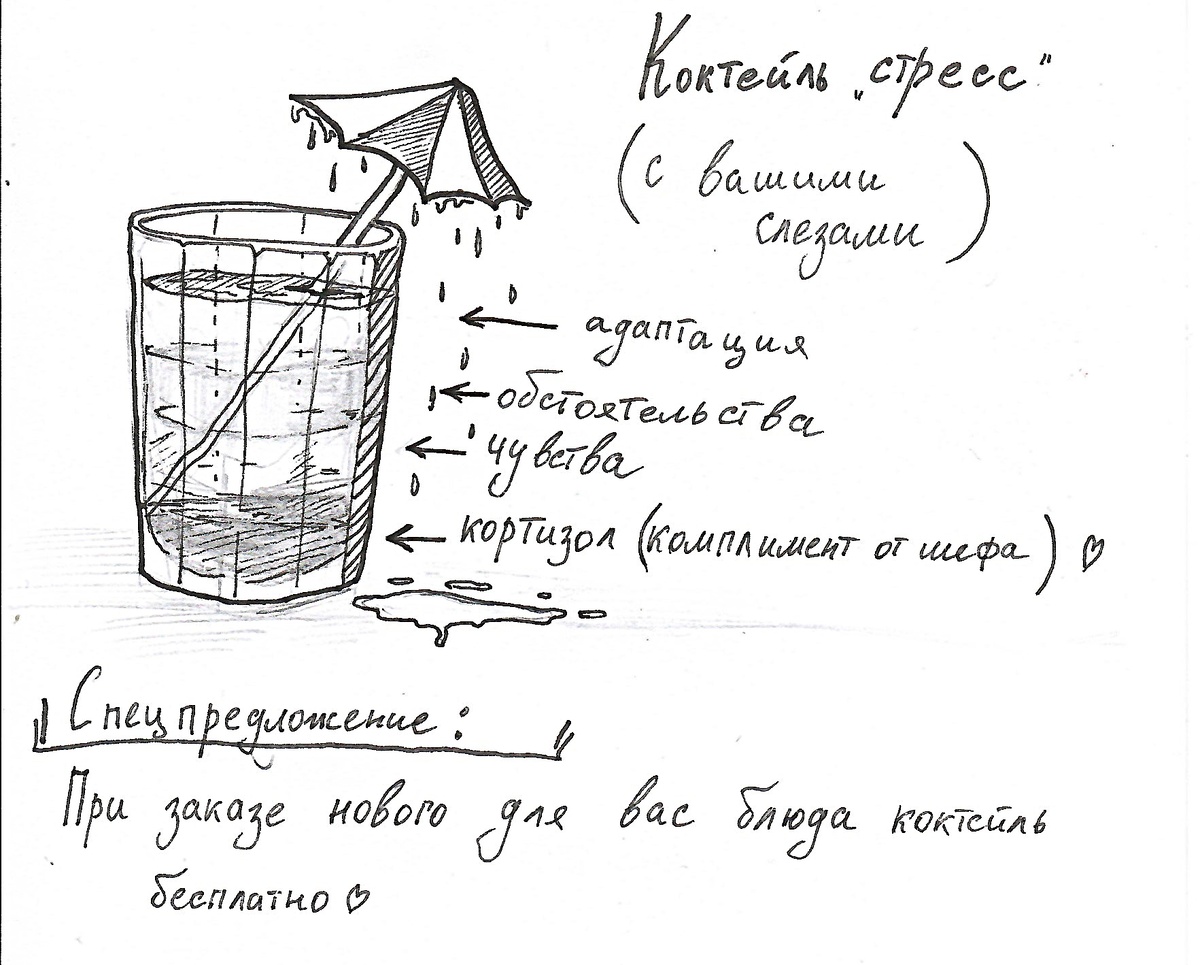 Коктейль „стресс"
(с вашими
слезами)
адаптация
обстоятельства
чувства
кортизол (комплимент от шефа) ♡
Спецпредложение:
При заказе нового для вас блюда коктейль
бесплатно ♡